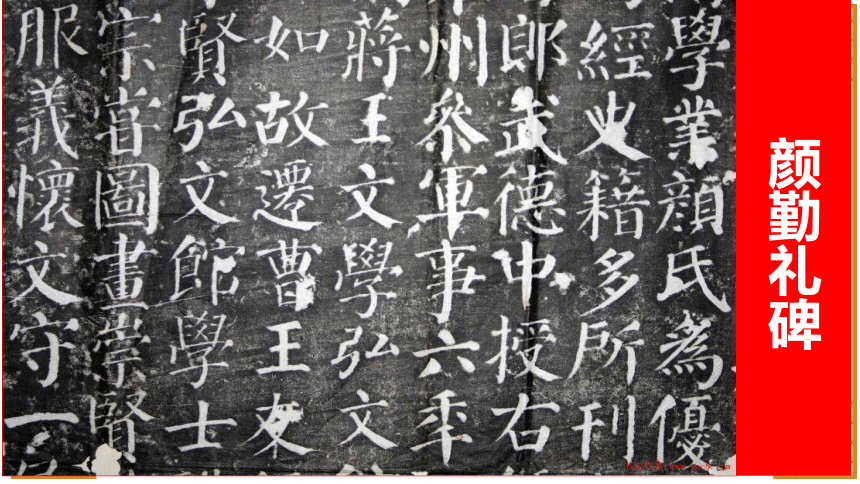 學業顏氏為優
經史籍多所刊
郎武德中授右
州參軍事六年
蔣王文學弘文
如故遷曹王友
賢弘文館學士
宗甞圖畫崇賢
服義懷文守一
颜勤礼碑